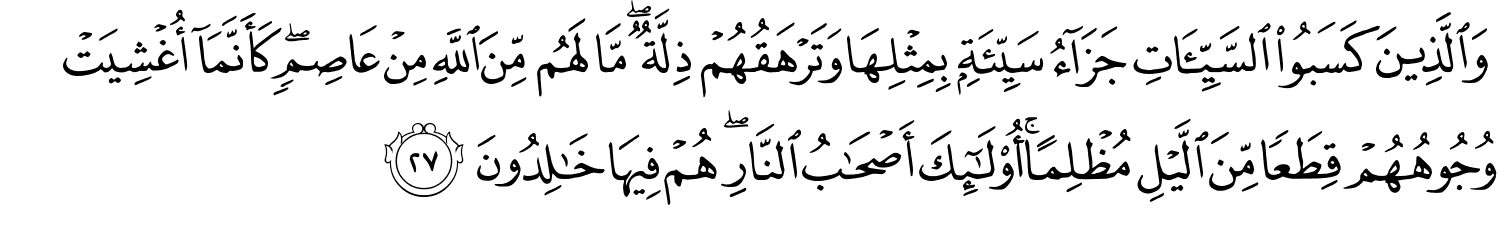 وَٱلَّذِينَ كَسَبُوا۟ ٱلسَّيِّـَٔاتِ جَزَآءُ سَيِّئَةٍۭ بِمِثْلِهَا وَتَرْهَقُهُمْ ذِلَّةٌ ۖ مَّا لَهُم مِّنَ ٱللَّهِ مِنْ عَاصِمٍ ۖ كَأَنَّمَآ أُغْشِيَتْ
وُجُوهُهُمْ قِطَعًا مِّنَ ٱلَّيْلِ مُظْلِمًا ۚ أُو۟لَـٰٓئِكَ أَصْحَـٰبُ ٱلنَّارِ ۖ هُمْ فِيهَا خَـٰلِدُونَ ٢٧